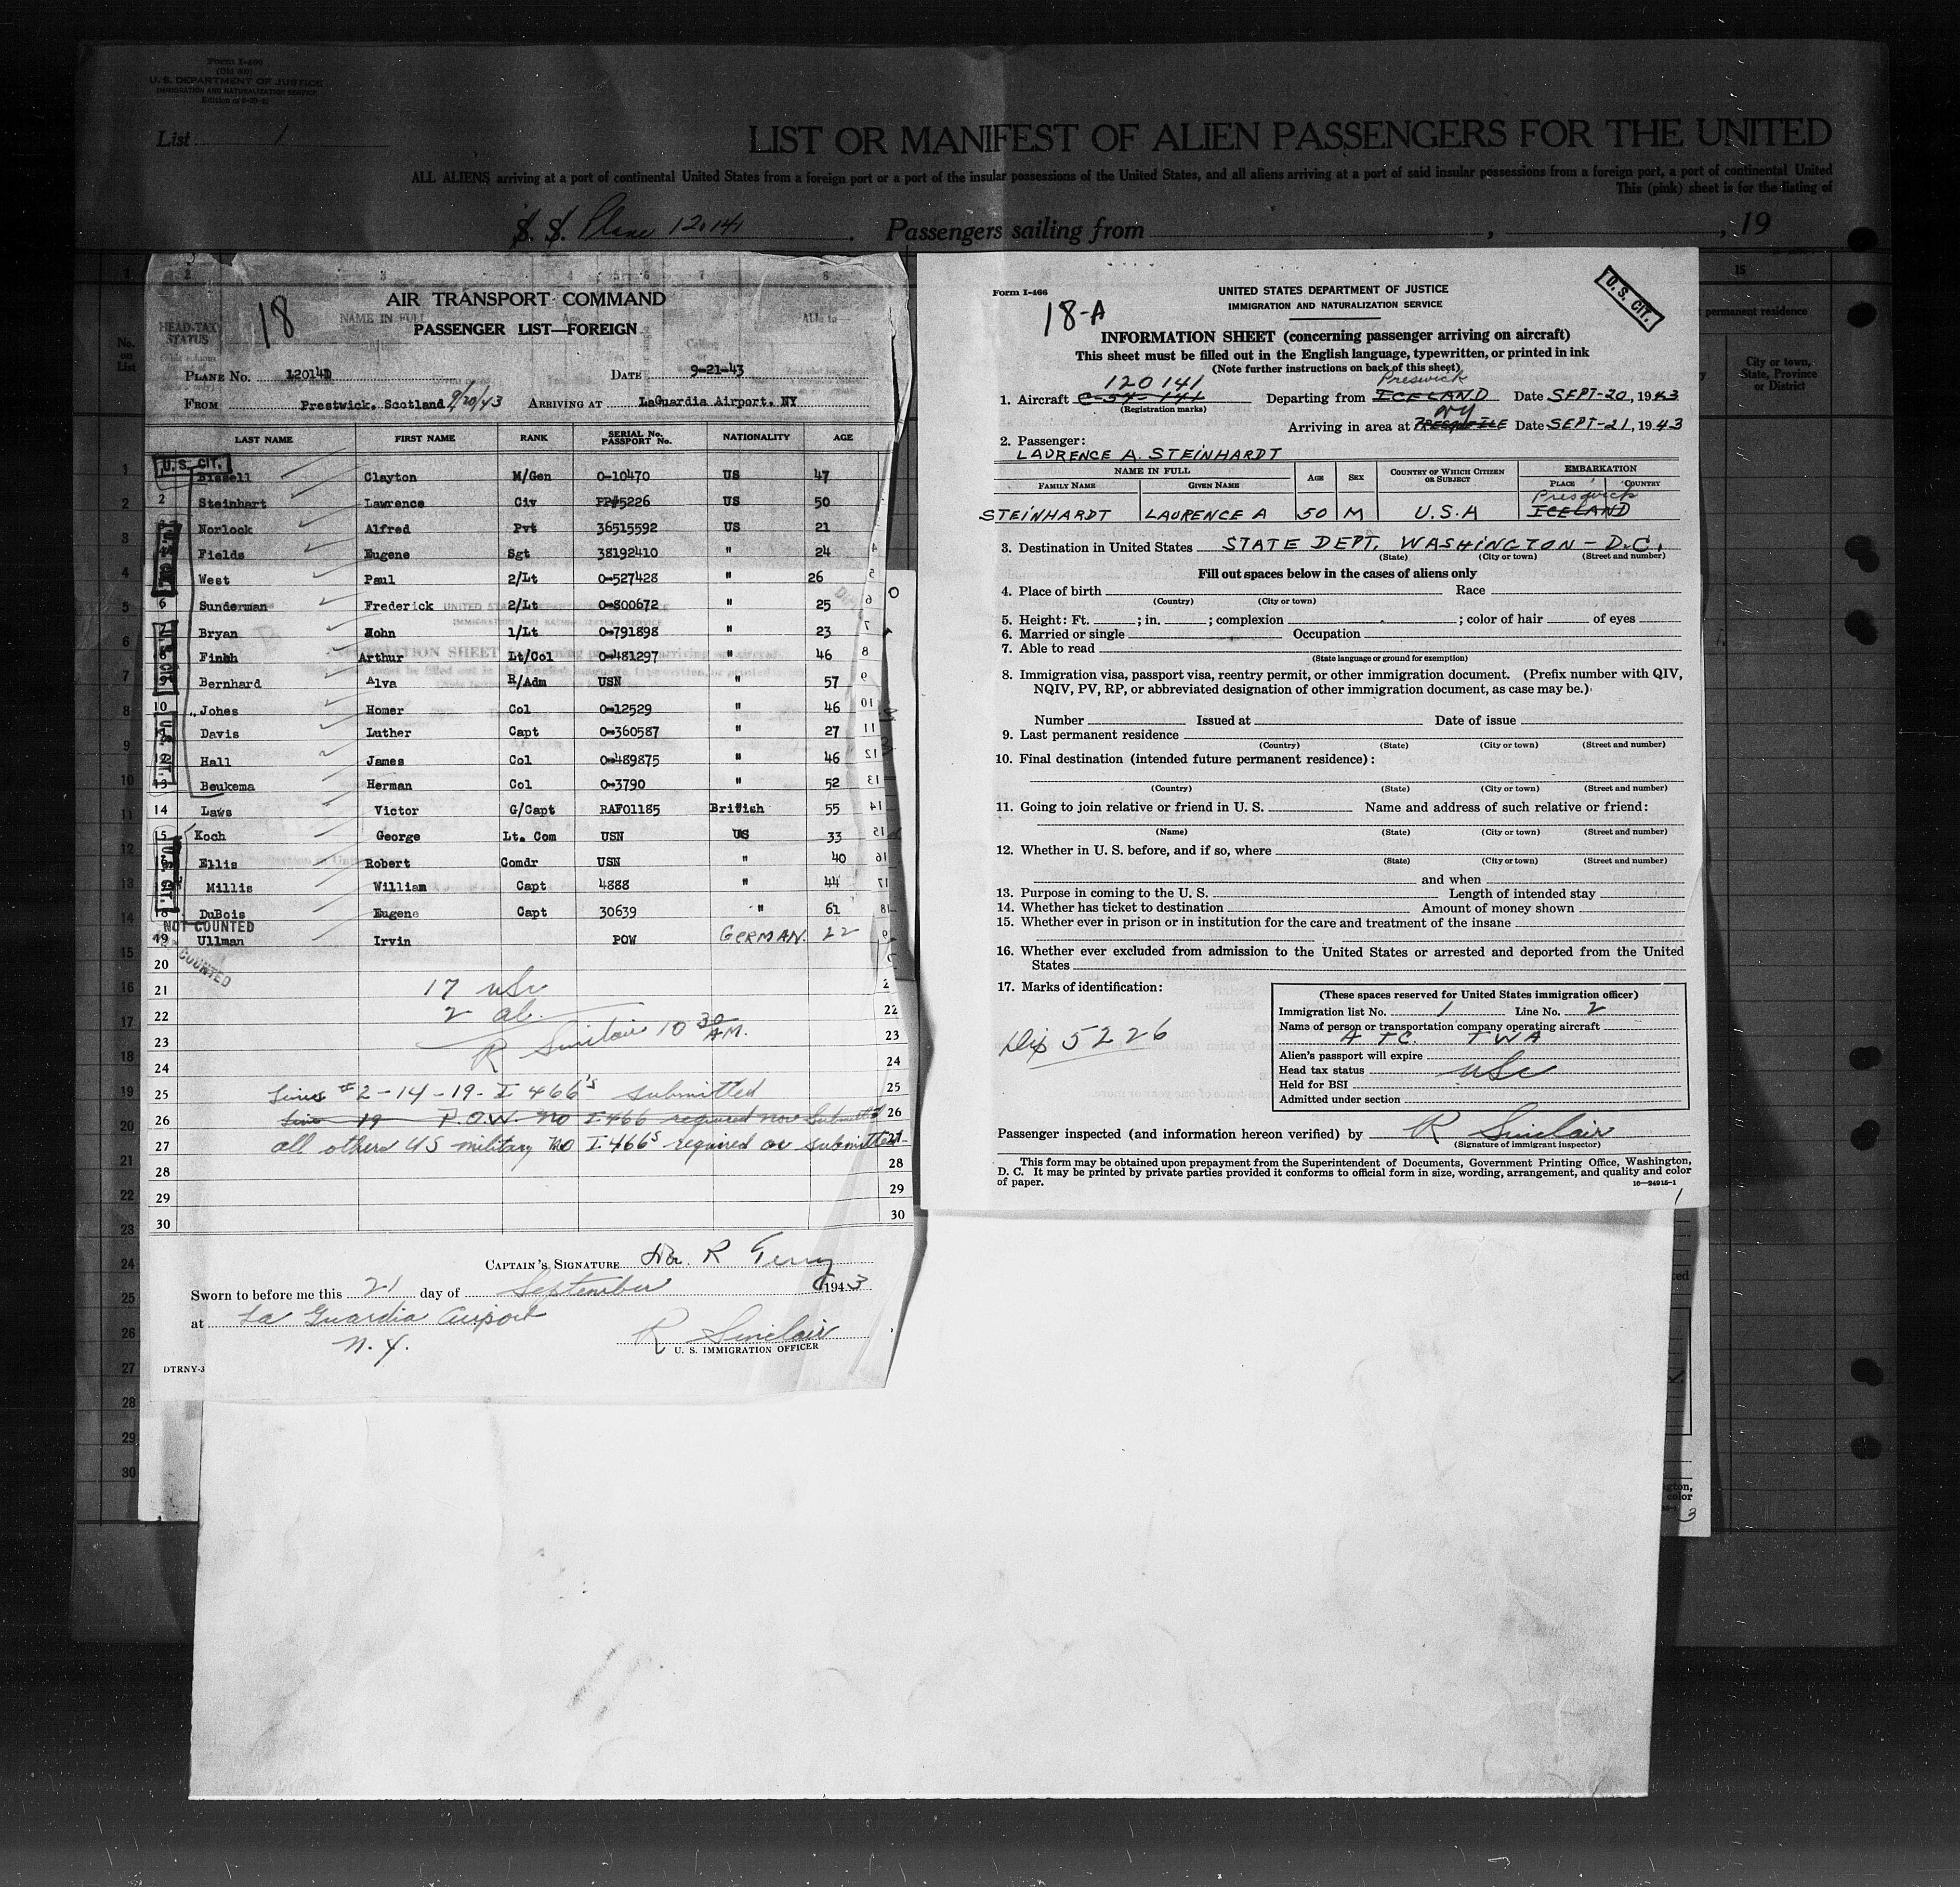 Form I-466
(Old 60)
U. S. DEPARTMENT OF JUSTICE
IMMIGRATION AND NATURALIZATION SERVICE
List 1
LIST OR MANIFEST OF ALIEN PASSENGERS FOR THE UNITED
ALL ALIENS arriving at a port of continental United States from a foreign port or a port of the insular possessions of the United States, and all aliens arriving at a port of said insular possessions from a foreign port, a port of continental United
This (pink) sheet is for the listing of
S. S. Plane 12,141. Passengers sailing from , , 19
18
AIR TRANSPORT COMMAND
PASSENGER LIST—FOREIGN
PLANE NO. 120141 DATE 9-21-43
FROM Prestwick, Scotland 9/20/43 ARRIVING AT LaGuardia Airport, NY
LAST NAME FIRST NAME RANK SERIAL No. PASSPORT No. NATIONALITY AGE
U. S. CIT.
1 Bissell Clayton M/Gen 0-10470 US 47
2 Steinhart Lawrence Civ PP#5226 US 50
Norlock Alfred Pvt 36515592 US 21
Fields Eugene Sgt 38192410 " 24
West Paul 2/Lt 0-527428 " 26
6 Sunderman Frederick 2/Lt 0-800672 " 25
Bryan John 1/Lt 0-791898 " 23
8 Finch Arthur Lt/Col 0-481297 " 46
9 Bernhard Alva R/Adm USN " 57
10 Johes Homer Col 0-12529 " 46
Davis Luther Capt 0-360587 " 27
12 Hall James Col 0-489875 " 46
13 Beukema Herman Col 0-3790 " 52
14 Laws Victor G/Capt RAF01185 British 55
15 Koch George Lt. Com USN US 33
16 Ellis Robert Comdr USN " 40
Millis William Capt 4888 " 44
18 DuBois Eugene Capt 30639 " 61
NOT COUNTED
19 Ullman Irvin POW GERMAN. 22
COUNTED
20
21 17 usc
22 2 al.
23 R Sinclair 10 30 AM.
24
25 Lines #2-14-19-I 466's submitted
26 Line 19 P.O.W. no I 466 required now submitted
27 all others US military no I 466s required or submitted
28
29
30
CAPTAIN'S SIGNATURE R Terry
Sworn to before me this 21 day of September 1943
at La Guardia Airport
N. Y.
R Sinclair
U. S. IMMIGRATION OFFICER
DTRNY-3
Form I-466
18-A
UNITED STATES DEPARTMENT OF JUSTICE
IMMIGRATION AND NATURALIZATION SERVICE
U. S. CIT.
INFORMATION SHEET (concerning passenger arriving on aircraft)
This sheet must be filled out in the English language, typewritten, or printed in ink
(Note further instructions on back of this sheet)
120141 Preswick
1. Aircraft C-54-141 Departing from ICELAND Date SEPT-20, 1943
(Registration marks)
NY
Arriving in area at PRESQUE ISLE Date SEPT-21, 1943
2. Passenger:
LAURENCE A. STEINHARDT
NAME IN FULL AGE SEX COUNTRY OF WHICH CITIZEN OR SUBJECT EMBARKATION
FAMILY NAME GIVEN NAME PLACE COUNTRY
Preswick
STEINHARDT LAURENCE A 50 M U.S.A ICELAND
3. Destination in United States STATE DEPT. WASHINGTON-D.C.
(State) (City or town) (Street and number)
Fill out spaces below in the cases of aliens only
4. Place of birth Race
(Country) (City or town)
5. Height: Ft. ; in. ; complexion ; color of hair of eyes
6. Married or single Occupation
7. Able to read
(State language or ground for exemption)
8. Immigration visa, passport visa, reentry permit, or other immigration document. (Prefix number with QIV,
NQIV, PV, RP, or abbreviated designation of other immigration document, as case may be.)
Number Issued at Date of issue
9. Last permanent residence
(Country) (State) (City or town) (Street and number)
10. Final destination (intended future permanent residence):
(Country) (State) (City or town) (Street and number)
11. Going to join relative or friend in U. S. Name and address of such relative or friend:
(Name) (State) (City or town) (Street and number)
12. Whether in U. S. before, and if so, where
(State) (City or town) (Street and number)
and when
13. Purpose in coming to the U. S. Length of intended stay
14. Whether has ticket to destination Amount of money shown
15. Whether ever in prison or in institution for the care and treatment of the insane
16. Whether ever excluded from admission to the United States or arrested and deported from the United
States
17. Marks of identification:
Dip 5226
(These spaces reserved for United States immigration officer)
Immigration list No. 1 Line No. 2
Name of person or transportation company operating aircraft
A TC. TWA
Alien's passport will expire
Head tax status usc
Held for BSI
Admitted under section
Passenger inspected (and information hereon verified) by R Sinclair
(Signature of immigrant inspector)
This form may be obtained upon prepayment from the Superintendent of Documents, Government Printing Office, Washington,
D. C. It may be printed by private parties provided it conforms to official form in size, wording, arrangement, and quality and color
of paper.
16—24915-1
1
15
permanent residence
City or town, State, Province or District
3